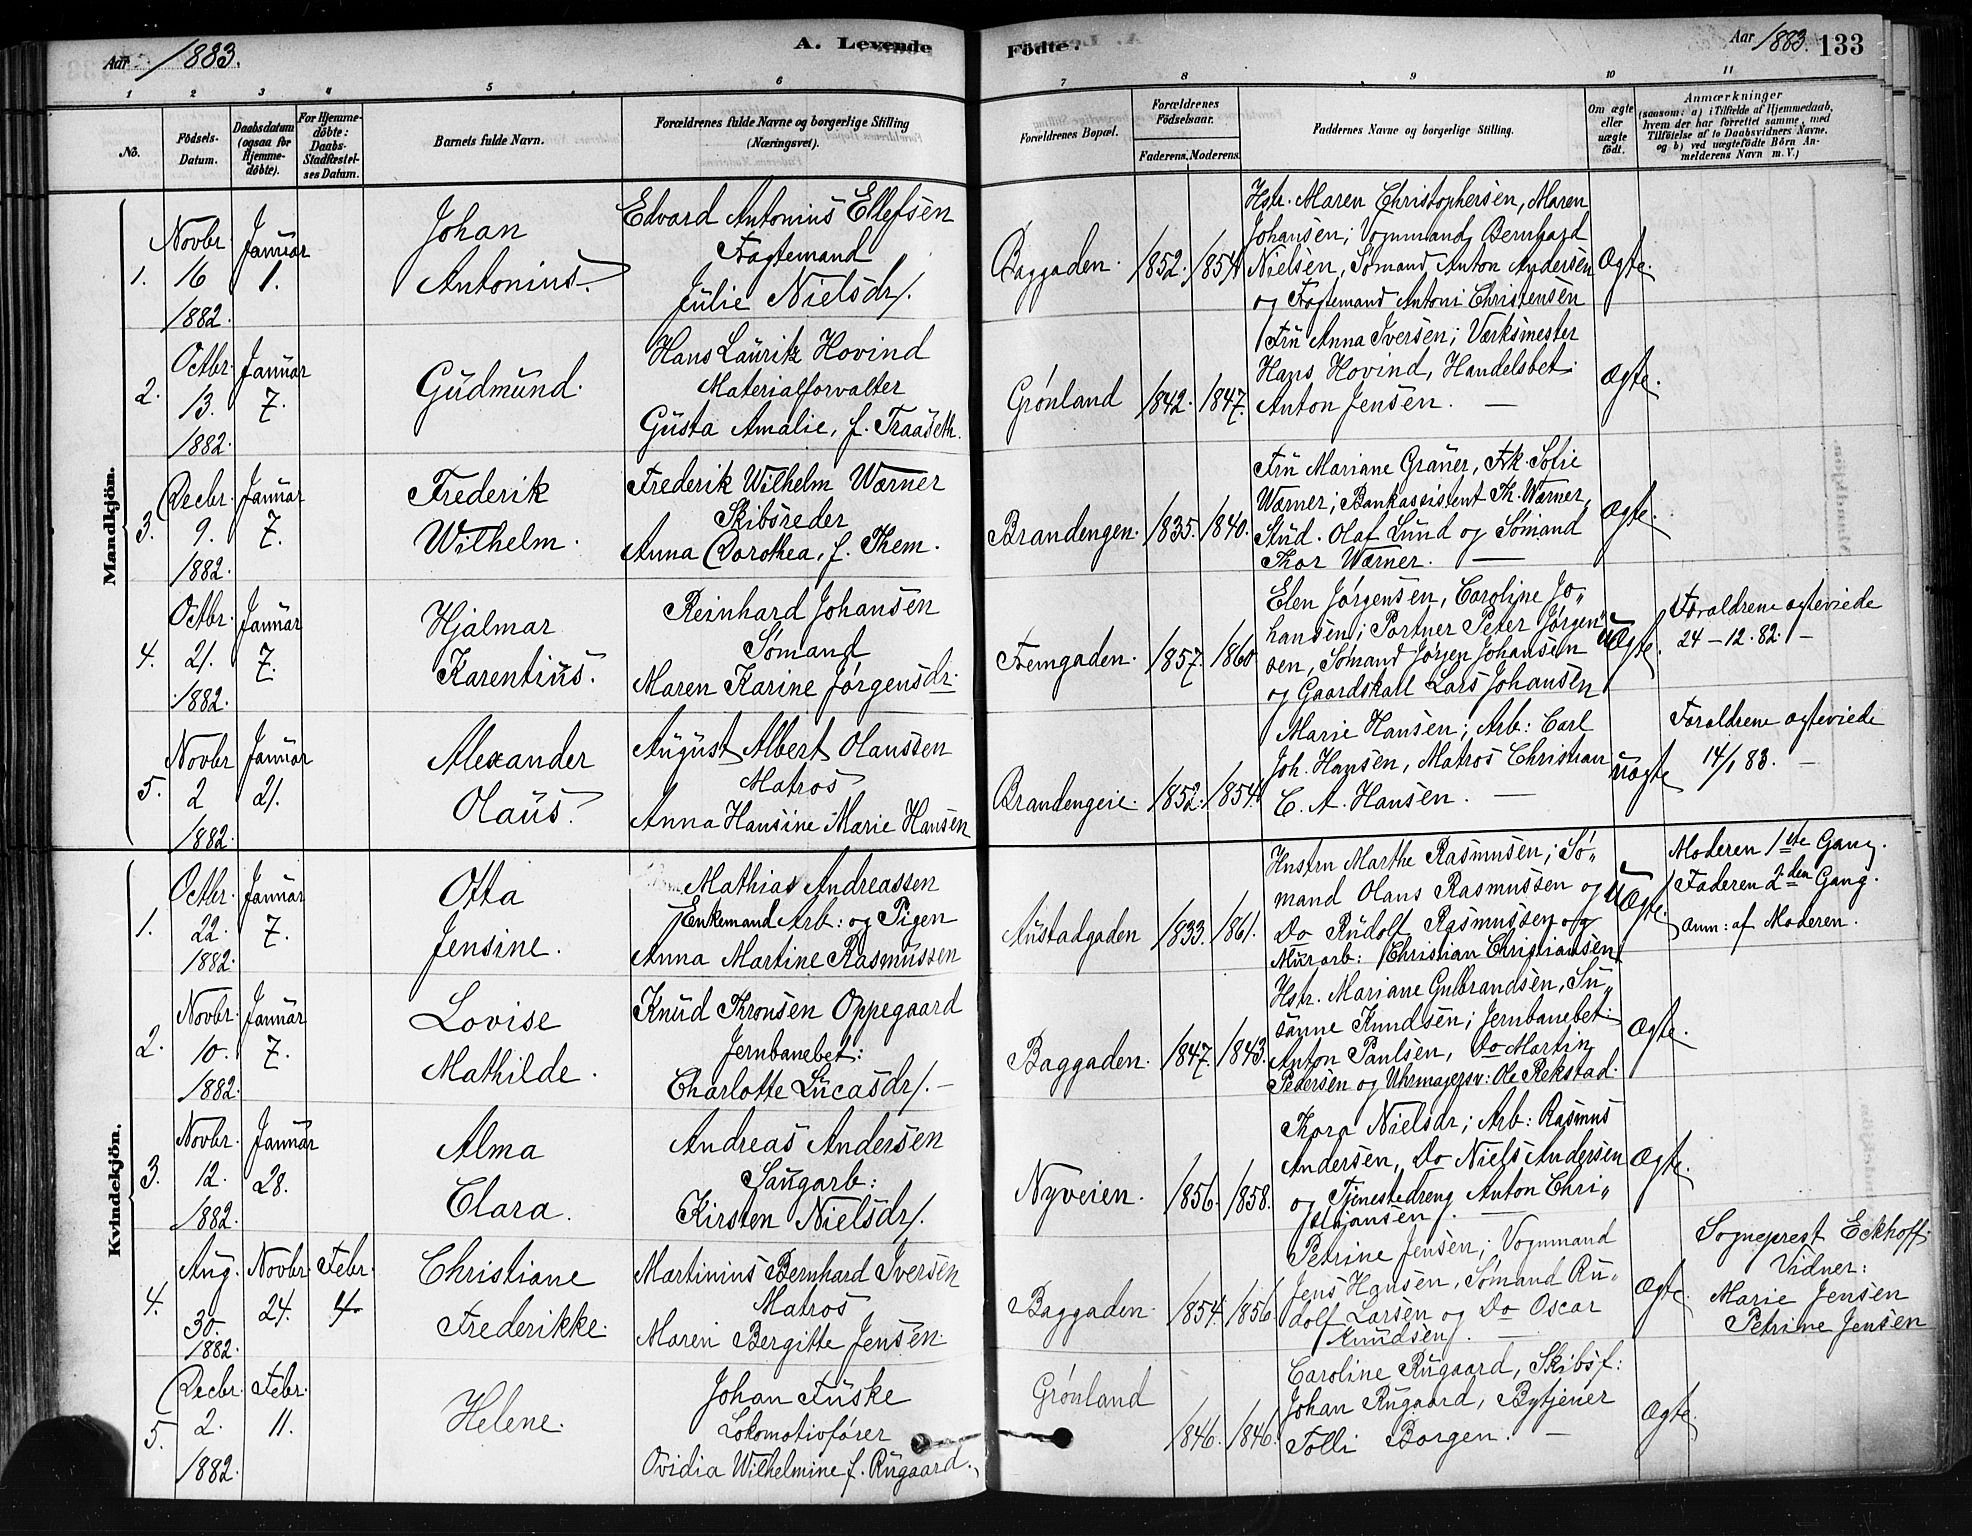 Aar 1883.
A. Levende
Födte.
Aar 1883. 133
1 2 3 4 5 6 7 8 9 10 11
No.
Födsels-Datum.
Daabsdatum (ogsaa for Hjemme-döbte).
For Hjemme-döbte: Daabs-Stadfæstel-ses Datum.
Barnets fulde Navn.
Forældrenes fulde Navne og borgerlige Stilling (Næringsvei).
Forældrenes Bopæl.
Forældrenes Födselsaar.
Faderens. Moderens.
Faddernes Navne og borgerlige Stilling.
Om ægte eller uægte födt.
Anmærkninger
(saasom: a) i Tilfælde af Hjemmedaab, hvem der har forrettet samme, med Tilföielse af to Daabsvidners Navne. og b) ved uægtefödte Börn An-melderens Navn m. V.)
Mandkjön.
1. Novbr. 16 1882. Januar 1.
Johan Antonius.
Edvard Antonius Ellefsen
Fragtemand
Julie Nielsdr.
Baggaden. 1852. 1854.
Hstr. Maren Christophersen, Maren
Johansen; Vognmand Bernhard
Nielsen, Sømand Anton Andersen
og Fragtemand Antoni Christensen
Ægte.
2. Octbr. 13. 1882. Januar 7.
Gudmund.
Hans Lauritz Hovind
Materialforvalter
Gusta Amalie, f. Traaseth.
Grønland 1842. 1847.
Fru Anna Iversen; Værksmester
Hans Hovind, Handelsbet.
Anton Jensen. —
Ægte.
3. Decbr. 9. 1882. Januar 7.
Frederik Wilhelm.
Frederik Wilhelm Wærner
Skibsreder
Anna Dorothea, f. Them.
Brandengen. 1835. 1840.
Fru Mariane Graner, Frk. Sofie
Wærner; Bankassistent Th. Wærner,
Stud. Olaf Lund og Sømand
Thor Wærner. —
Ægte.
4. Octbr. 21. 1882. Januar 7.
Hjalmar Karentius.
Reinhard Johansen
Sømand
Maren Karine Jørgensdr.
Fremgaden. 1857. 1860
Elen Jørgensen, Caroline Jo„
hansen; Portner Peter Jørgen„
sen, Sømand Jørgen Johansen
og Gaardskarl Lars Johansen
uÆgte.
Forældrene ægteviede
24 – 12. 82. –
5. Novbr 2 1882. Januar 21.
Alexander Olaus.
August Albert Olaussen
Matros
Anna Hansine Marie Hansen
Brandengeie. 1852. 1854.
Marie Hansen; Arb: Carl
Joh. Hansen, Matros Christian
C. A. Hansen. —
uægte
Forældrene ægteviede
14/1 83. —
Kvindekjön.
1. Octbr. 22. 1882. Januar 7.
Otta Jensine.
Mathias Andreassen
Enkemand Arb: og Pigen
Anna Martine Rasmussen
Austadgaden 1833. 1861.
Hustru Marthe Rasmusen; Sø„
mand Olaus Rasmussen og
Do Rudolf Rasmussen og
Murarb: Christian Christiansen
uÆgte.
Moderen 1ste Gang.
Faderen 2den Gang.
anm: af Moderen.
2. Novbr. 10. 1882. Januar 7.
Lovise Mathilde.
Knud Thronsen Oppegaard
Jernbanebet:
Charlotte Lucasdr. –
Baggaden. 1847. 1843.
Hstr. Mariane Gulbrandsen, Su„
sanne Knudsen; Jernbanebet:
Anton Paulsen, Do Martin
Pedersen og Uhrmagersv: Ole Rekstad.
Ægte.
3. Novbr. 12. 1882. Januar 28.
Alma Clara.
Andreas Andersen
Saugarb:
Kirsten Nielsdr.
Nyveien. 1856. 1858.
Thora Nielsdr; Arb: Rasmus
Andersen, Do Niels Andersen
og Tjenestedreng Anton Chri„
stiansen. —
Ægte.
4. Aug. 30. 1882. Novbr. 24. Febr. 4.
Christiane Frederikke.
Martinius Bernhard Iversen
Matros
Maren Bergitte Jensen.
Baggaden. 1854. 1856
Petrine Jensen; Vognmand
Jens Hansen, Sømand Ru„
dolf Larsen og Do Oscar
Knudsen. —
Ægte.
Sogneprest Eckhoff.
Vidner:
Marie Jensen
Petrine Jensen
5. Decbr. 2. 1882. Febr. 11.
Helene.
Johan Fuske
Lokomotivfører
Ovidia Wilhelmine f. Rugaard.
Grønland 1846. 1846.
Caroline Rugaard, Skibsf:
Johan Rugaard, Bytjener
Tolli Borgen. —
Ægte.